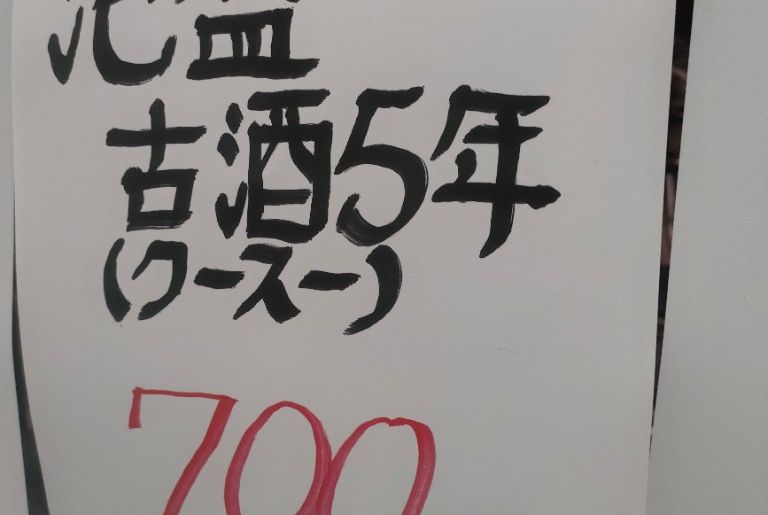 泡盛
古酒5年
(クースー)
700